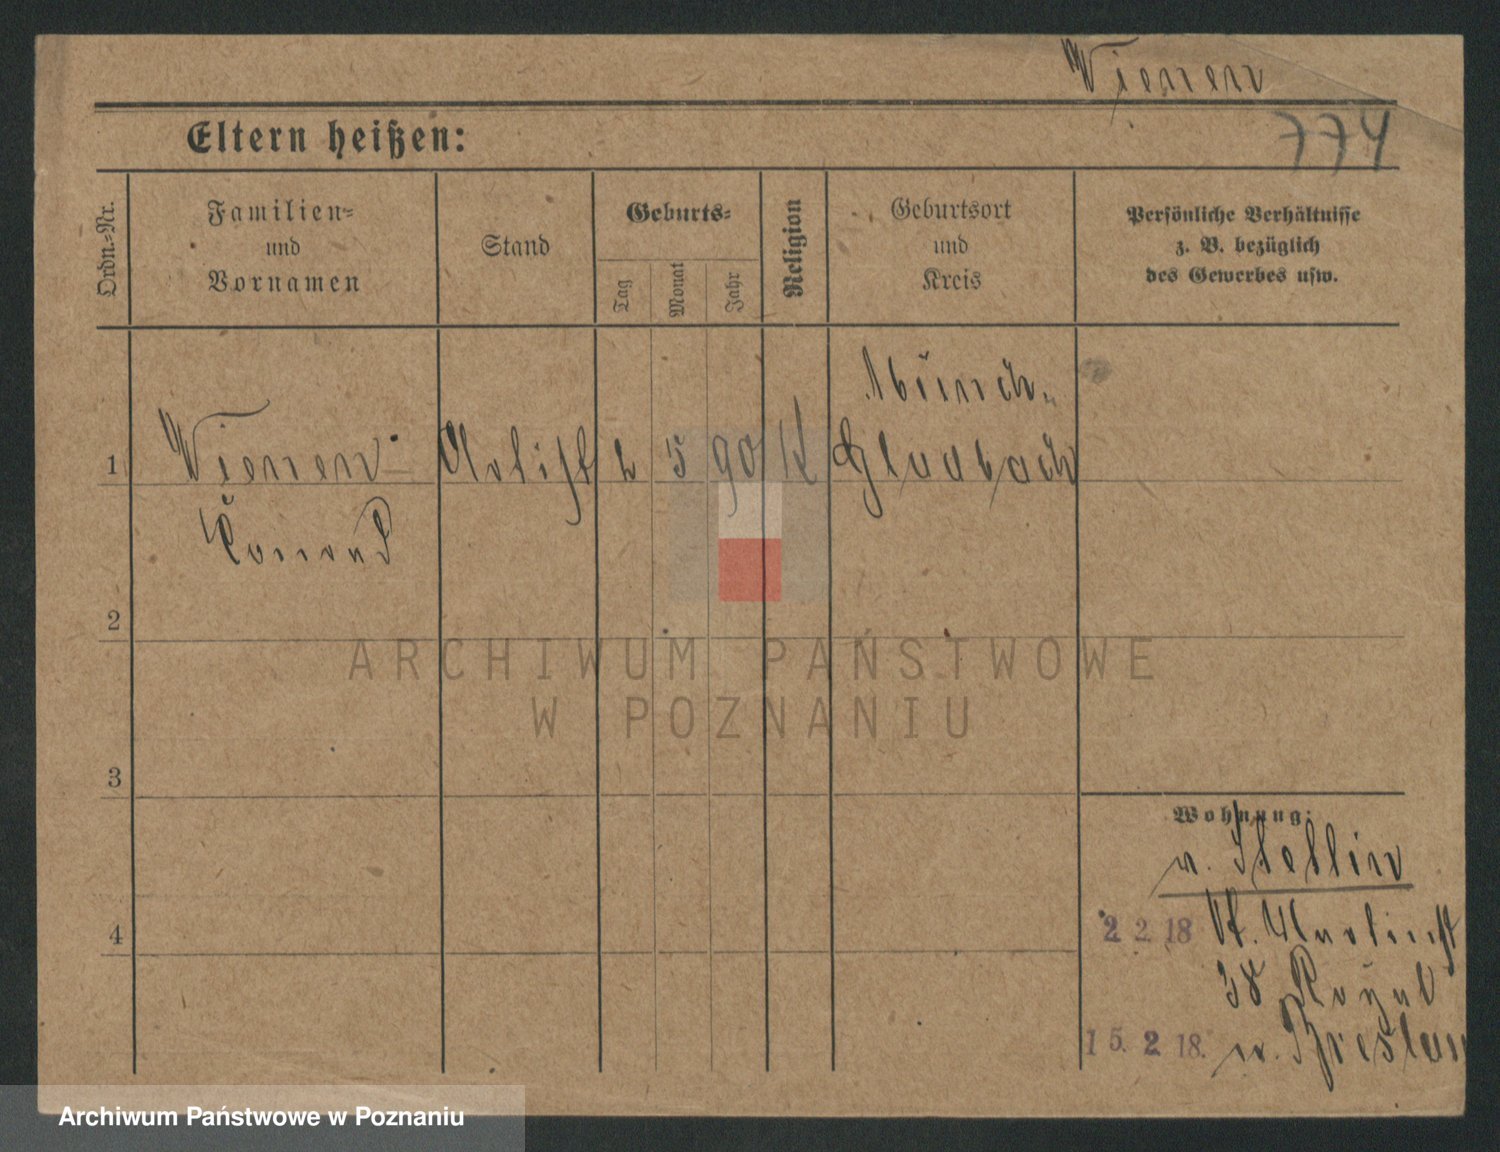 Wienen
774
Eltern heißen:
Ordn.-Nr.
Familien-
und
Vornamen
Stand
Geburts-
Tag
Monat
Jahr
Religion
Geburtsort
und
Kreis
Persönliche Verhältnisse
z. B. bezüglich
des Gewerbes usw.
1
Wienen
Conrad
Artist
2
5
90
K
Münch-
Gladbach
2
3
4
Wohnung:
v. Stettin
2. 2. 18 St. Martinst
38 Royal
15. 2. 18. n. Breslau
ARCHIWUM PAŃSTWOWE
W POZNANIU
Archiwum Państwowe w Poznaniu